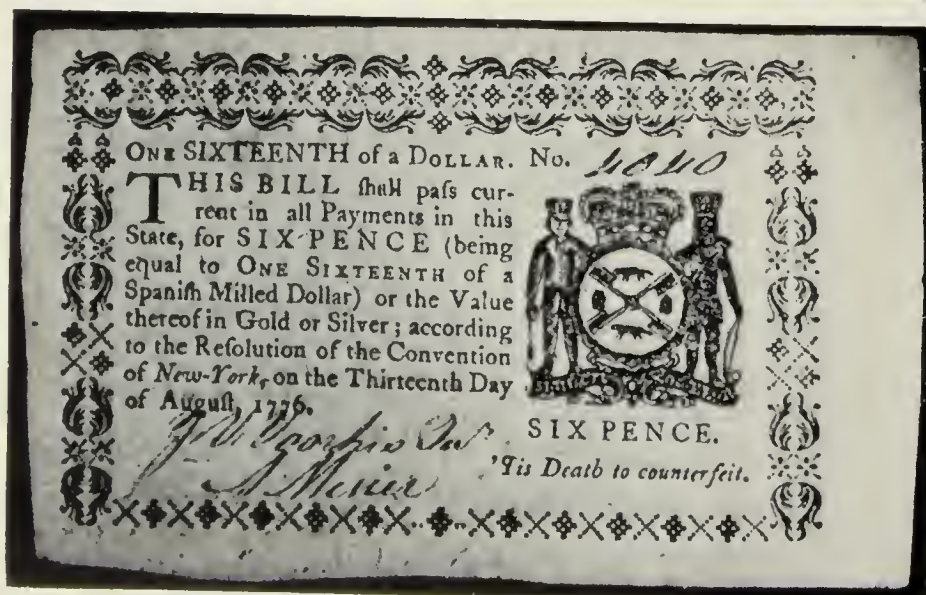 ONE SIXTEENTH of a DOLLAR. No. 4040
THIS BILL ſhall paſs cur-
rent in all Payments in this
State, for SIX PENCE (being
equal to ONE SIXTEENTH of a
Spaniſh Milled Dollar) or the Value
thereof in Gold or Silver; according
to the Reſolution of the Convention
of New-York, on the Thirteenth Day
of Auguſt, 1776.
SIX PENCE.
'Tis Death to counterfeit.